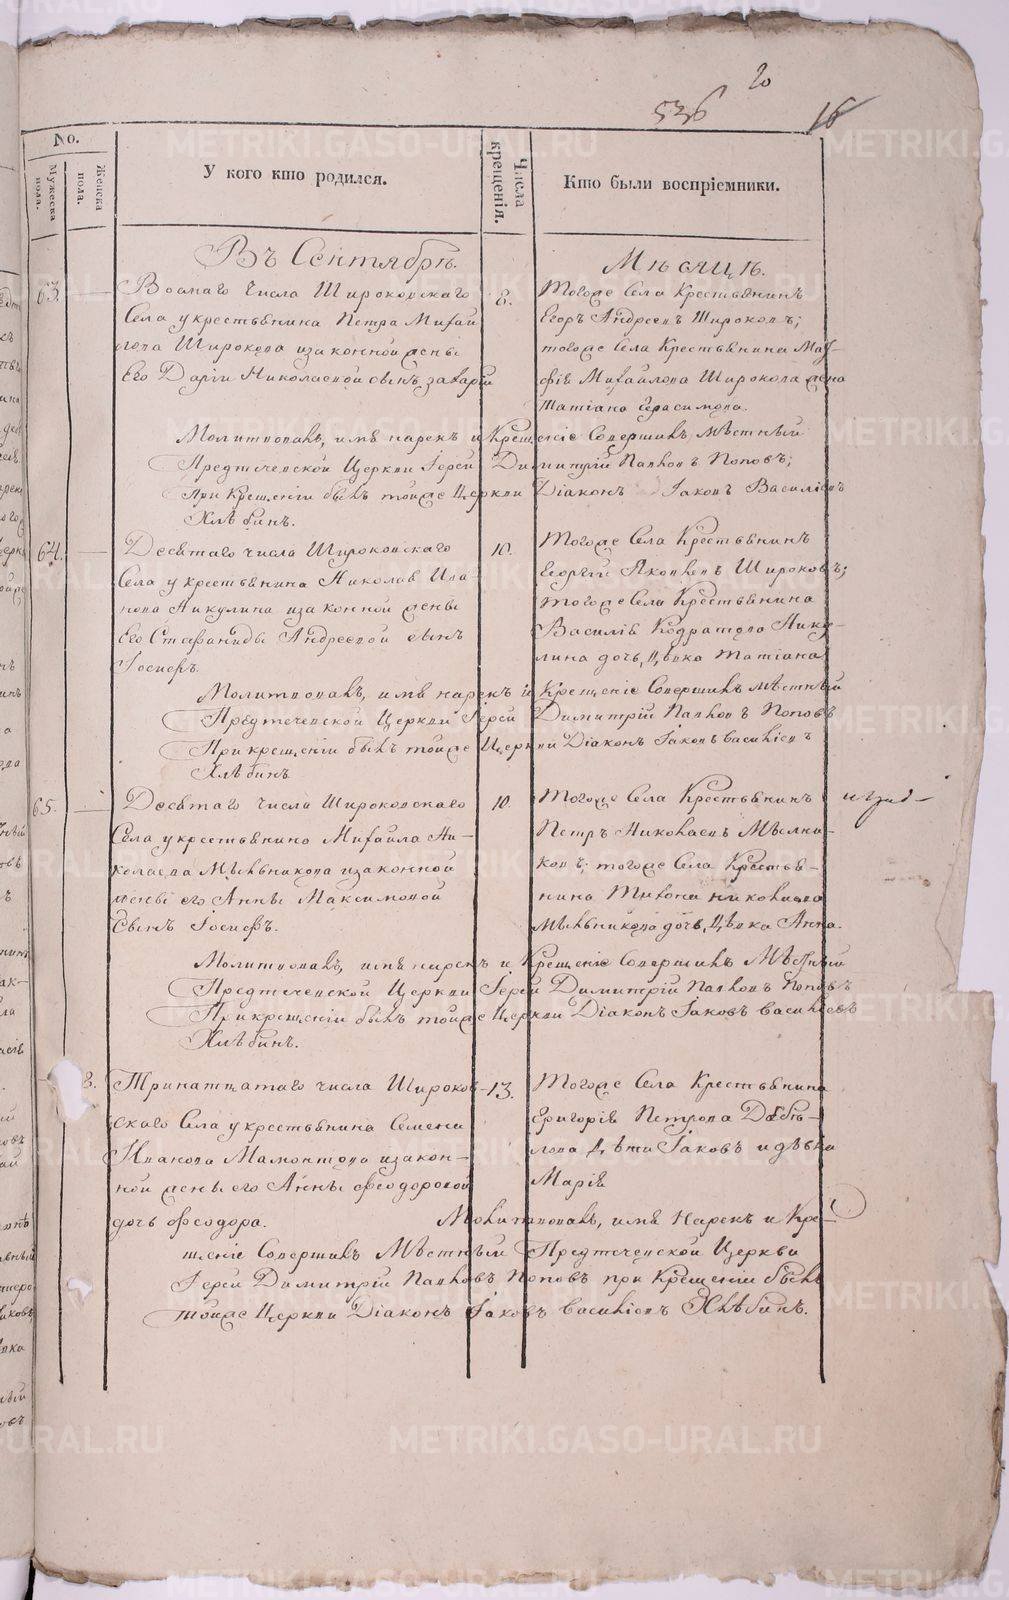 20
536 16
No.
Мужеска пола.
Женска пола.
У кого кто родился.
Числа крещенія.
Кто были воспріемники.
Въ Сентябрѣ
Мѣсяцѣ.
63.
Восмаго числа Широковскаго
Села у крестьянина Петра Михай
лова Широкова изаконной жены
Его Даріи Николаевой сынъ Захарій
8.
Тогоже Села Крестьянинъ
Егоръ Андреевъ Широковъ;
тогоже Села Крестьянина Мат-
фія Михайлова Широкова жена
Татіана Герасимова.
Молитвовалъ, имя нарекъ и Крещеніе Совершилъ Мѣстный
Предтечевской Церкви Іерей Димитрій Павловъ Поповъ;
При Крещеніи былъ тойже Церкви Діаконъ Іаковъ Васильевъ
Хлѣбинъ.
64.
Десятаго числа Широковскаго
Села у крестьянина Николая Ива-
нова Никулина изаконной жены
Его Стефаниды Андреевой сынъ
Іосифъ.
10.
Тогоже Села Крестьянинъ
Георгій Яковлевъ Широковъ;
тогоже Села Крестьянина
Василія Кодратова Нику-
лина дочь, дѣвка Татіана
Молитвовалъ, имя нарекъ и Крещеніе Совершилъ мѣстный
Предтечевской Церкви Іерей Димитрій Павловъ Поповъ
При крещеніи былъ тойже Церкви Діаконъ Іаковъ Васильевъ
Хлѣбинъ.
65.
Десятаго числа Широковскаго
Села у крестьянино Михайла Ни-
колаева Мѣльникова изаконной
жены его Анны Максимовой
Сынъ Іосифъ.
10.
Тогоже Села Крестьянинъ
Петръ Николаевъ Мѣлни-
ковъ; тогоже Села Крестья-
нина Тихона николаева
Мѣльникова дочь, дѣвка Анна.
Молитвовалъ, имя нарекъ и Крещеніе Совершилъ Мѣстный
Предтечевской Церкви Іерей Димитрій Павловъ Поповъ
При крещеніи былъ тойже Церкви Діаконъ Іаковъ Васильевъ
Хлѣбинъ.
8.
Тринаттатаго числа Широков-
скаго Села у крестьянина Семена
Иванова Мамонтова изакон-
ной жены его Анны Феодоровой
дочь Феодора.
13.
Тогоже Села Крестьянина
Григорія Петрова Дебѣ-
лова Дѣти Іаковъ и дѣвка
Марія
Молитвовалъ, имя Нарекъ и Кре-
щеніе Совершилъ Мѣстный Предтечевской Церкви
Іерей Димитрій Павловъ Поповъ при Крещеніи былъ
тойже Церкви Діаконъ Іаковъ Васильевъ Хлѣбинъ.
METRIKI.GASO-URAL.RU